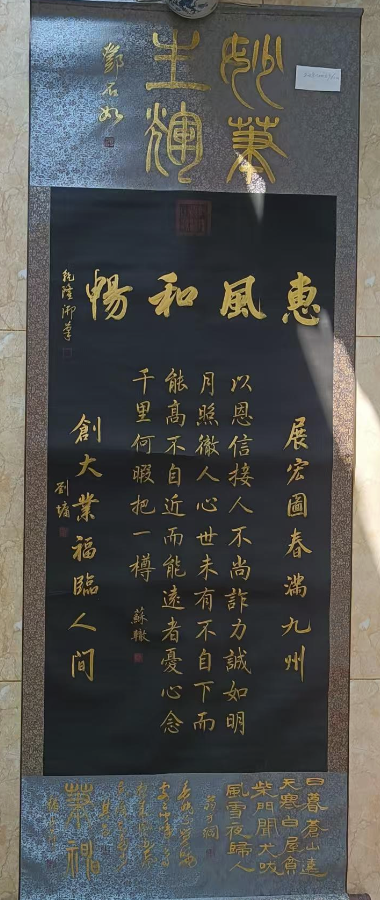 妙筆
生輝
鄧石如
惠風和暢
乾隆御筆
展宏圖春滿九州
以恩信接人不尚詐力誠如明
月照徹人心世未有不自下而
能高不自近而能遠者憂心念
千里何暇把一樽
蘇轍
創大業福臨人間
劉墉
日暮蒼山遠
天寒白屋貧
柴門聞犬吠
風雪夜歸人
翁方綱